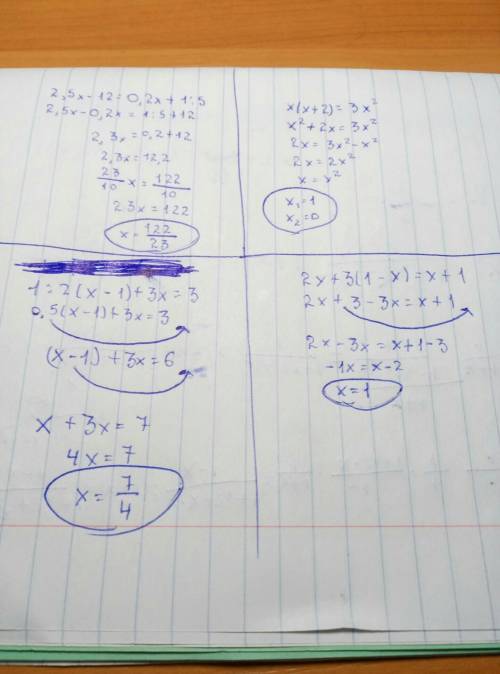 2,5x-12=0,2x+1:5
2,5x-0,2x=1:5+12
2,3x=0,2+12
2,3x=12,2
23/10 x = 122/10
23x=122
x=122/23
x(x+2)=3x²
x²+2x=3x²
2x=3x²-x²
2x=2x²
x=x²
x₁=1
x₂=0
1:2(x-1)+3x=3
0,5(x-1)+3x=3
(x-1)+3x=6
x+3x=7
4x=7
x=7/4
2x+3(1-x)=x+1
2x+3-3x=x+1
2x-3x=x+1-3
-1x=x-2
x=1